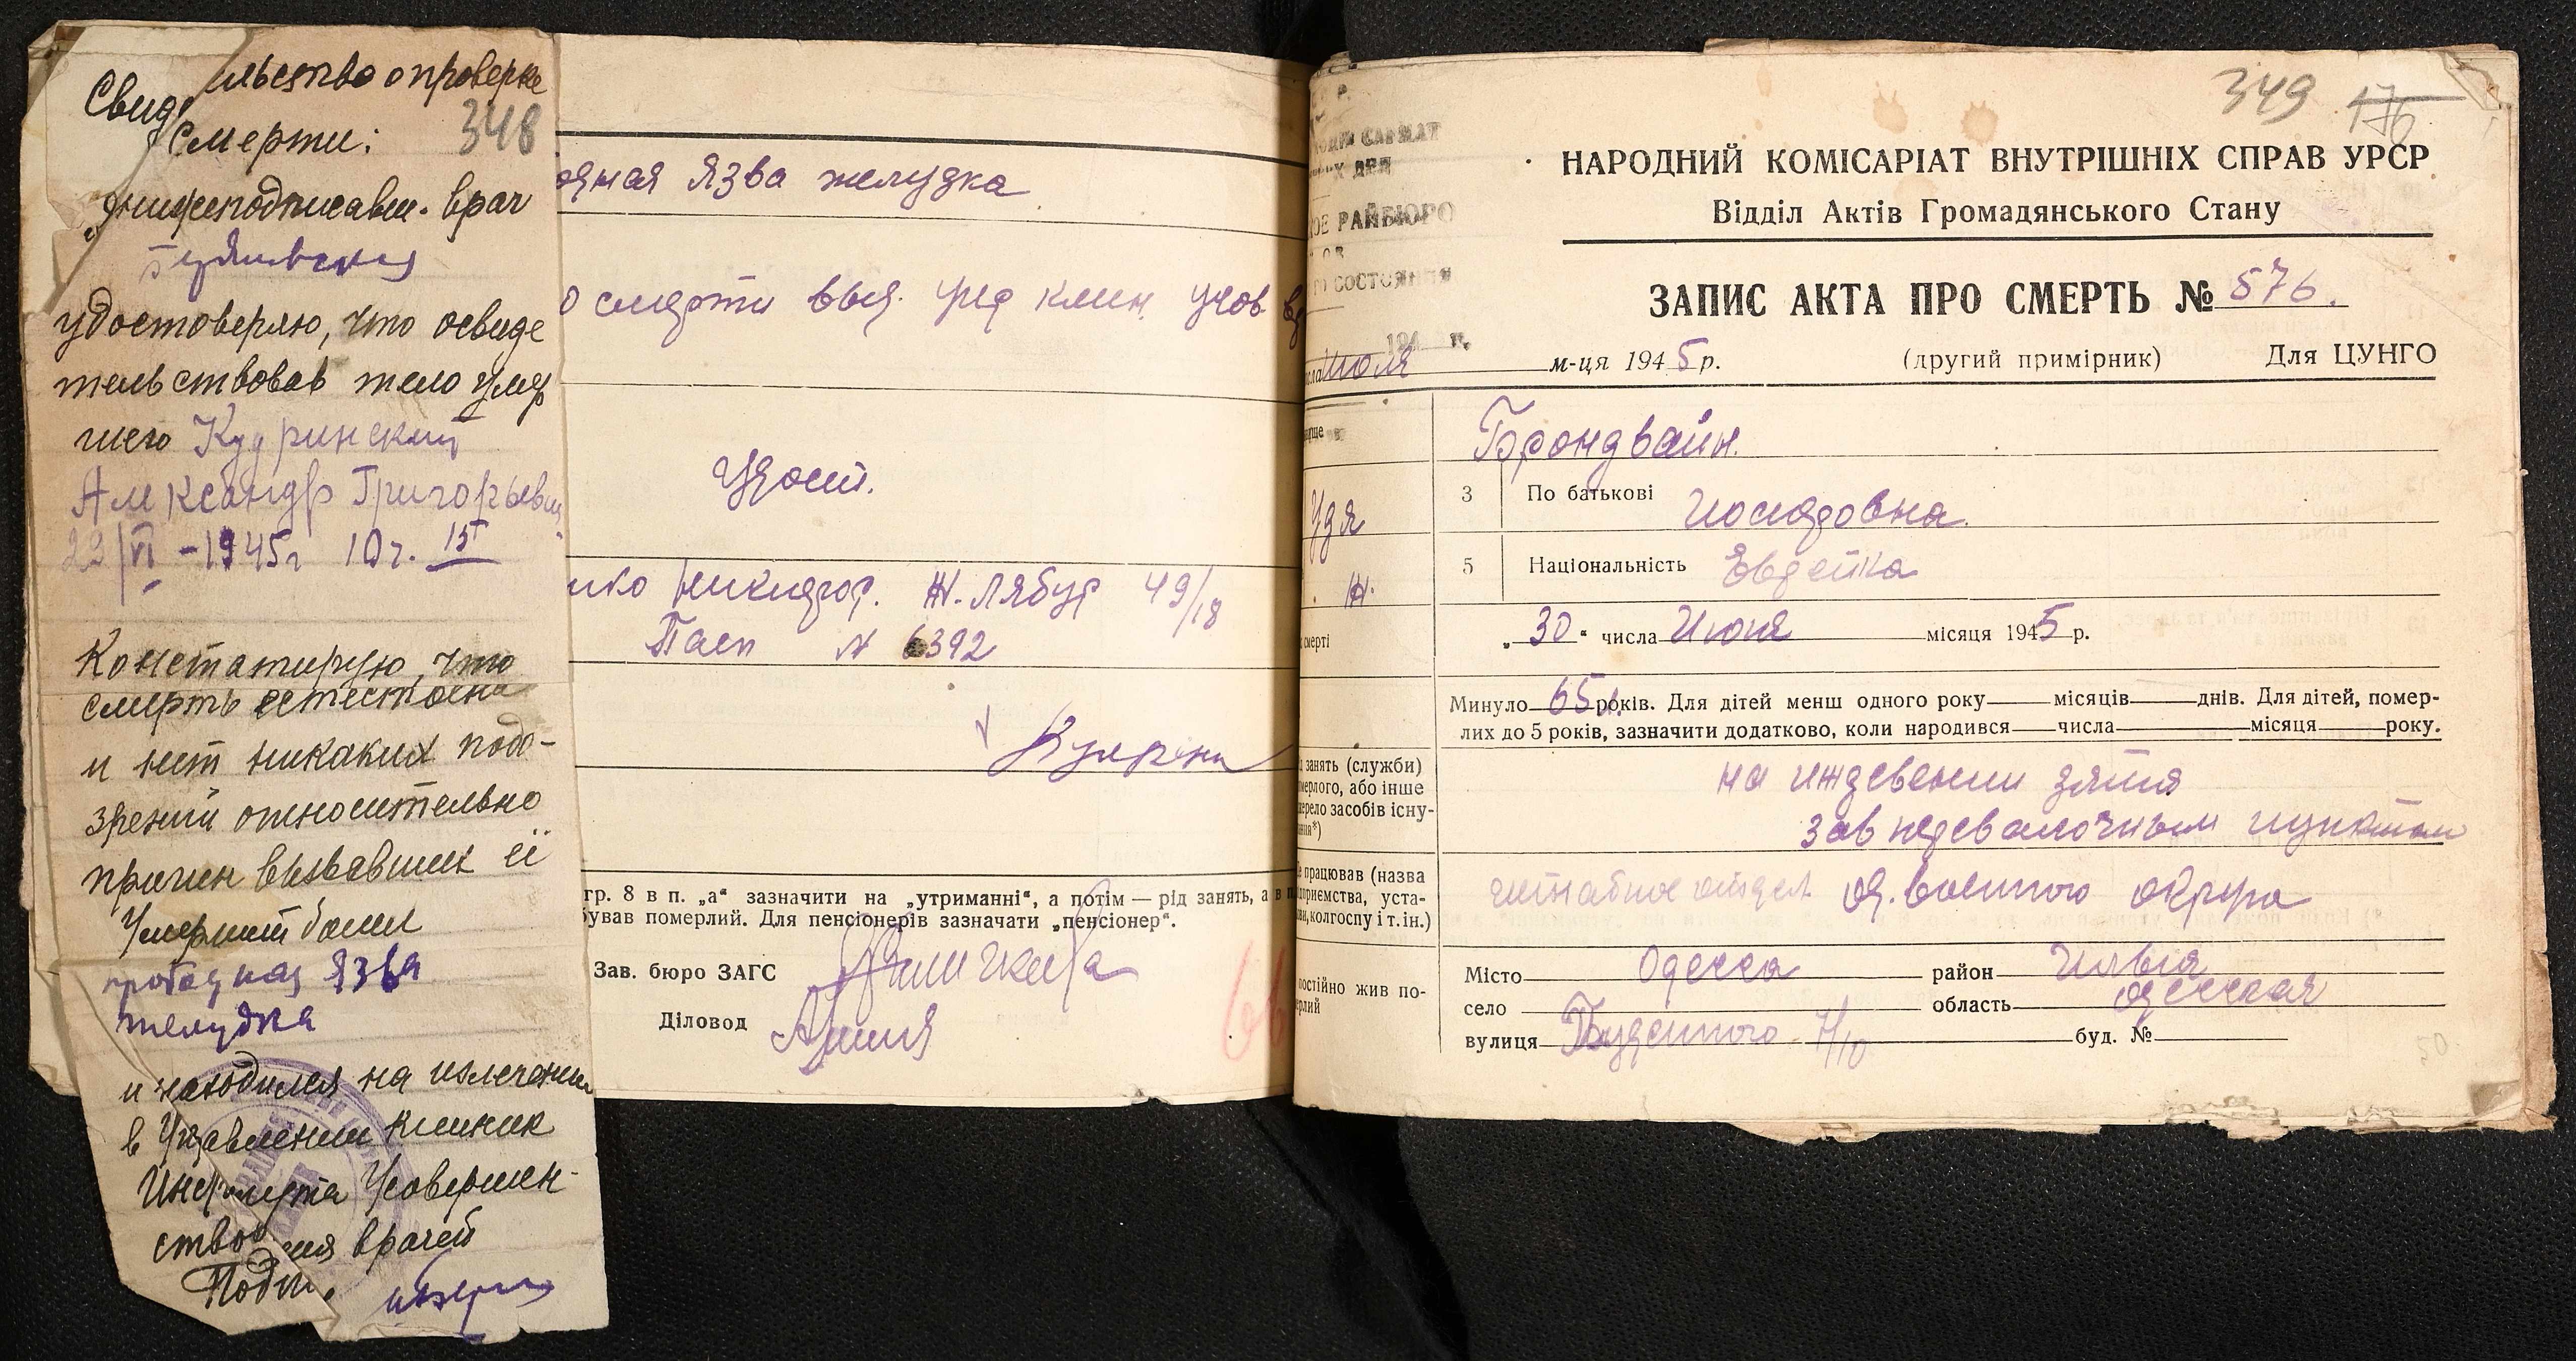 Свид ильство о проверке
смерти:
348
нижеподписавш. врач
удостоверяю, что освиде
тельствовав тело умер
шего Кудринский
Александр Григорьевич
23/VI - 1945г 10ч. 15
Констатирую, что
смерть естественна
и нет никаких подо-
зрений относительно
причин вызвавших её
Умерший болел
прободная язва
желудка
и находился на излечении
в Управлении клиник
Института Усовершен-
ствов ия врачей
Подп.
одная язва желудка
о смерти выд. упр клин. усов в
Удост.
нко Никифор. Ж. Лябур 49/18
Пасп № 6392
гр. 8 в п. „а“ зазначити на „утриманні“, а потім — рід занять, а в п
бував померлий. Для пенсіонерів зазначати „пенсіонер“.
Зав. бюро ЗАГС
Діловод
66
349 176
НАРОДНИЙ КОМІСАРІАТ ВНУТРІШНІХ СПРАВ УРСР
Відділ Актів Громадянського Стану
САРИАТ
Х ДЕЛ
ОЕ РАЙБЮРО
ОВ
ГО СОСТОЯНИЯ
194 г.
ЗАПИС АКТА ПРО СМЕРТЬ № 576.
сла Июля м-ця 1945 р. (другий примірник) Для ЦУНГО
ище Брондвайн.
Удя 3 По батькові Иосифовна.
Ж. 5 Національність Еврейка
смерті „30“ числа Июня місяця 1945 р.
Минуло 65 л. років. Для дітей менш одного року місяців днів. Для дітей, помер-
лих до 5 років, зазначити додатково, коли народився числа місяця року.
д занять (служби)
мерлого, або інше
жерело засобів існу-
ання*)
на иждевении зятя
зав перевалочным пунктом
е працював (назва
дприємства, уста-
ви, колгоспу і т. ін.)
штабное отдел Од. военного округа
постійно жив по-
ерлий
Місто Одесса район Ильич
село область Одесская
вулиця Буденного 7/10 буд. №